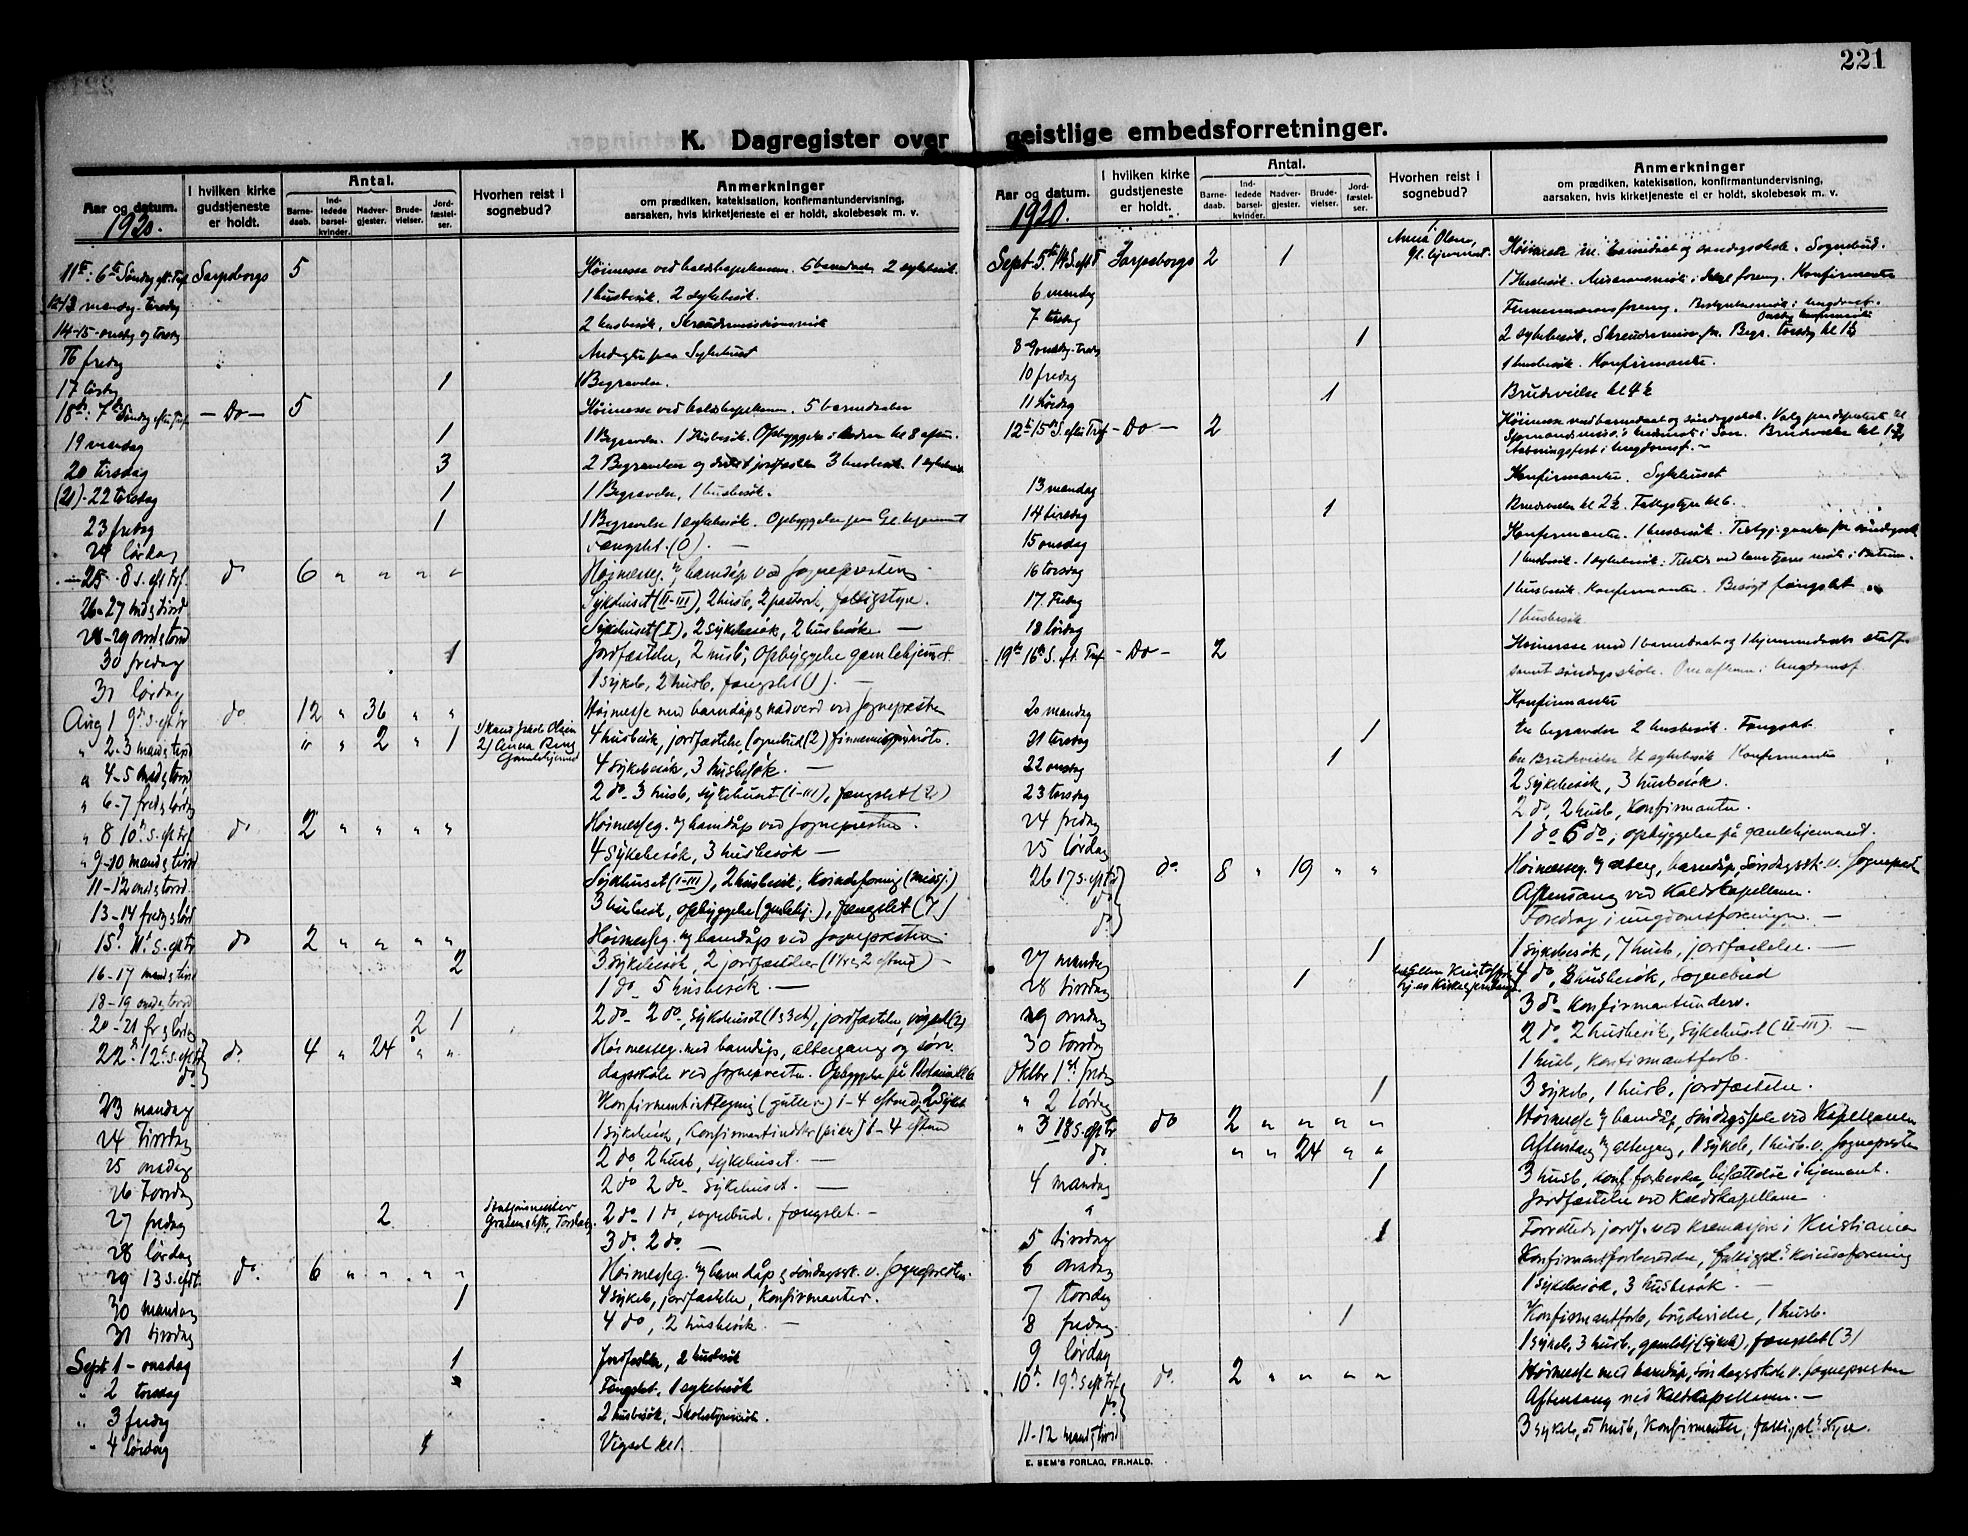 221
K. Dagregister over geistlige embedsforretninger.
Aar og datum.
1920.
I hvilken kirke gudstjeneste er holdt.
Antal.
Barne-daab.
Ind-ledede barsel-kvinder.
Nadver-gjester.
Brude-vielser.
Jord-fæstel-ser.
Hvorhen reist i sognebud?
Anmerkninger
om prædiken, katekisation, konfirmantundervisning,
aarsaken, hvis kirketjeneste ei er holdt, skolebesøk m. v.
11te: 6te Søndag eft. Tref. Sarpsborgs 5 Høimesse ved kaldskapellanen. 5 barnedaab 2 sykebesøk.
12-13 mandag-tirsdag 1 husbesøk. 2 sykebesøk.
14-15 onsdag og torsdag 2 husbesøk.
16 fredag Andagt paa Sykehuset
17 lørdag 1 1 Begravelse.
18de: 7de Søndag efter Tref. - Do - 5 Høimesse ved kaldskapellanen. 5 barnedaab
19 mandag 1 1 Begravelse. 1 Husbesøk. Opbyggelse i kl 8 eftm.
20 tirsdag 3 2 Begravelser og jordfæstelse 3 husbesøk. 1 sykebesøk
(21)-22 torsdag 1 1 Begravelse, 1 husbesøk.
23 fredag 1 1 Begravelse 1 sykebesøk. Opbyggelse paa Gl. hjemmet
24 lørdag Fængslet (0). -
25 8 s. eft. tref. do 6 " " " " Høimesseg. m barndåp ved sognepresten.
26-27 mand. g tirsd Sykehuset (II-III), 2 husb, 2 fattigstyre.
28-29 onsd g torsd Sykehuset (I), 2 sykebesøk, 2 husbesøk -
30 fredag 1 Jordfæstelse, 2 husb; Opbyggelse gamlehjemmet.
31 lørdag 1 sykeb, 2 husb, fængslet (1). -
Aug 1 9de s. eft tr do 12 " 36 " " Høimesse med barndåp g nadverd ved sognepresten
" 2-3 mand g tirsd " " 2 " 1 2) Anna Ring Gamlehjemmet 4 husbesøk, jordfæstelse, sognebud (2)
" 4-5 onsd g torsd 4 sykebesøk, 3 husbesøk. -
" 6-7 fred g lørdag 2 do - 3 husb, sykehuset (I-III), fængslet (2)
" 8 10de s. eft tref do 2 " " " " Høimesseg. m barndåp ved sognepresten.
" 9-10 mand g tirsd 4 sykebesøk, 3 husbesøk -
11-12 onsd g torsd Sykehuset (I-III), 2 husbesøk, kvindeforening (misj.)
13-14 fred g lørd 3 husbesøk, opbyggelse (gamlehj.), fængslet
15de 11te s. eft tr do 2 " " " " Høimesseg. m barndåp ved sognepresten
16-17 mand g tirsd 2 3 sykebesøk, 2 jordfæstelser
18-19 onsd g torsd 1 do - 5 husbesøk. -
20-21 fr g lørdag 2 1 2 do - 2 do -, sykehuset, jordfæstelse, vigsel (2)
22de 12te s. eft tr do 4 " 24 " " Høimesseg. med barndåp, altergang og søn-
do dagsskole ved sognepresten. Opbyggelse på
23 mandag 1-4 eftmd, 2 sykeb
24 tirsdag 1 sykebesøk, 1-4 eftmd
25 onsdag 2 do, 2 husb, sykehuset. -
26 torsdag 2 do 2 do - Sykehuset. -
27 fredag 2 2 do - 1 do, sognebud, fængslet. -
28 lørdag 3 do. 2 do. -
29 13 s. eft. do. 6 " " " " Høimesseg. m barndåp g søndagssk. v. sognepresten.
30 mandag 1 4 sykeb, jordfæstelse, konfirmanter.
31 tirsdag 4 do, 2 husbesøk -
Sept 1 - onsdag 1 Jordfæstelse, 2 husbesøk
" 2 torsdag Fængslet, 1 sykebesøk
" 3 fredag 2 husbesøk,
" 4 lørdag 1 Vigsel kl 1.
Aar og datum.
1920.
I hvilken kirke gudstjeneste er holdt.
Antal.
Barne-daab.
Ind-ledede barsel-kvinder.
Nadver-gjester.
Brude-vielser.
Jord-fæstel-ser.
Hvorhen reist i sognebud?
Anmerkninger
om prædiken, katekisation, konfirmantundervisning,
aarsaken, hvis kirketjeneste ei er holdt, skolebesøk m. v.
Sept 5te 14 S. eft T Sarpsborgs 2 1 Anna Olsen, Gl. hjemmet. Høimesse m. barnedaab og søndagsskole. Sognebud.
6 mandag 1 Husbesøk. Konfirmanter
7 tirsdag
8-9 onsdag-torsdag 1 2 sykebesøk.
10 fredag 1 husbesøk. Konfirmanter.
11 Lørdag 1 Brudevielse kl 4½
12te 15de S. efter Tref - Do - 2 Høimesse ved barnedaab og søndagsskole. Valg paa
Brudevielse kl
13 mandag Konfirmanter. Sykehuset
14 tirsdag 1 Brudevielse kl 2½. Fattigstyre kl 6.
15 onsdag Konfirmanter. 1 husbesøk.
16 torsdag 1 husbesøk. 1 sykebesøk.
17. Fredag 1 husbesøk. Konfirmanter. Besøgt fængslet
18 lørdag 1 husbesøk
19de 16de S. eft. Tref - Do - 2 Høimesse med 1 barnedaab og 1 hjemmedaab
samt søndagsskole.
20 mandag Konfirmanter
21 tirsdag 1 En begravelse 2 husbesøk. Fængslet
22 onsdag 1 En Brudevielse Et sykebesøk Konfirmanter
23 torsdag 2 sykebesøk, 3 husbesøk.
24 fredag 2 do, 2 husb, konfirmanter.
25 lørdag 1 do 6 do, opbyggelse på gamlehjemmet.
26 17 s. eft tr do. 8 " 19 " " Høimesseg. m alterg, barndåp, søndagssk. v. sognepresten
do Aftensang ved kaldskapellanen.
do Foredrag i ungdomsforeningen. -
27 mandag 1 1 sykebesøk, 7 husb, jordfæstelse. -
28 tirsdag 1 4 do, 3 husbesøk, sognebud
29 onsdag 3 do - konfirmantunderv.
30 torsdag 2 do. 2 husbesøk, sykehuset (II-III). -
Oktbr 1ste fredag 1 husb, konfirmantforb.
" 2 lørdag 1 3 sykeb, 1 husb, jordfæstelse.
" 3 18 s. eft tr do 2 " " " " Høimesse m barndåp, søndagsskole ved kapellanen
do. " " 24 " " Aftensang m altergang, 1 sykeb, 1 husb. v. sognepresten
4 mandag 1 3 husb, konf forbered.
" Jordfæstelse ved kaldskapellanen
5 tirsdag 1 jordf. ved kremasjon i Kristiania
6 onsdag Konfirmantforberedelse, kvindeforening
7 torsdag 1 sykebesøk, 3 husbesøk. -
8 fredag 1 Konfirmantforb, brudevielse, 1 husb.
9 lørdag 1 sykeb, 3 husb, gamlehj (sykeb), fængslet (3)
10de 19de s. eft tref do. 2 " " " " Høimesse med barndåp, søndagsskole v. sognepresten
do Aftensang ved kaldskapellanen. -
11-12 mand g tirsd 3 sykeb, 5 husb, konfirmanter,
E. SEM'S FORLAG, FR.HALD.